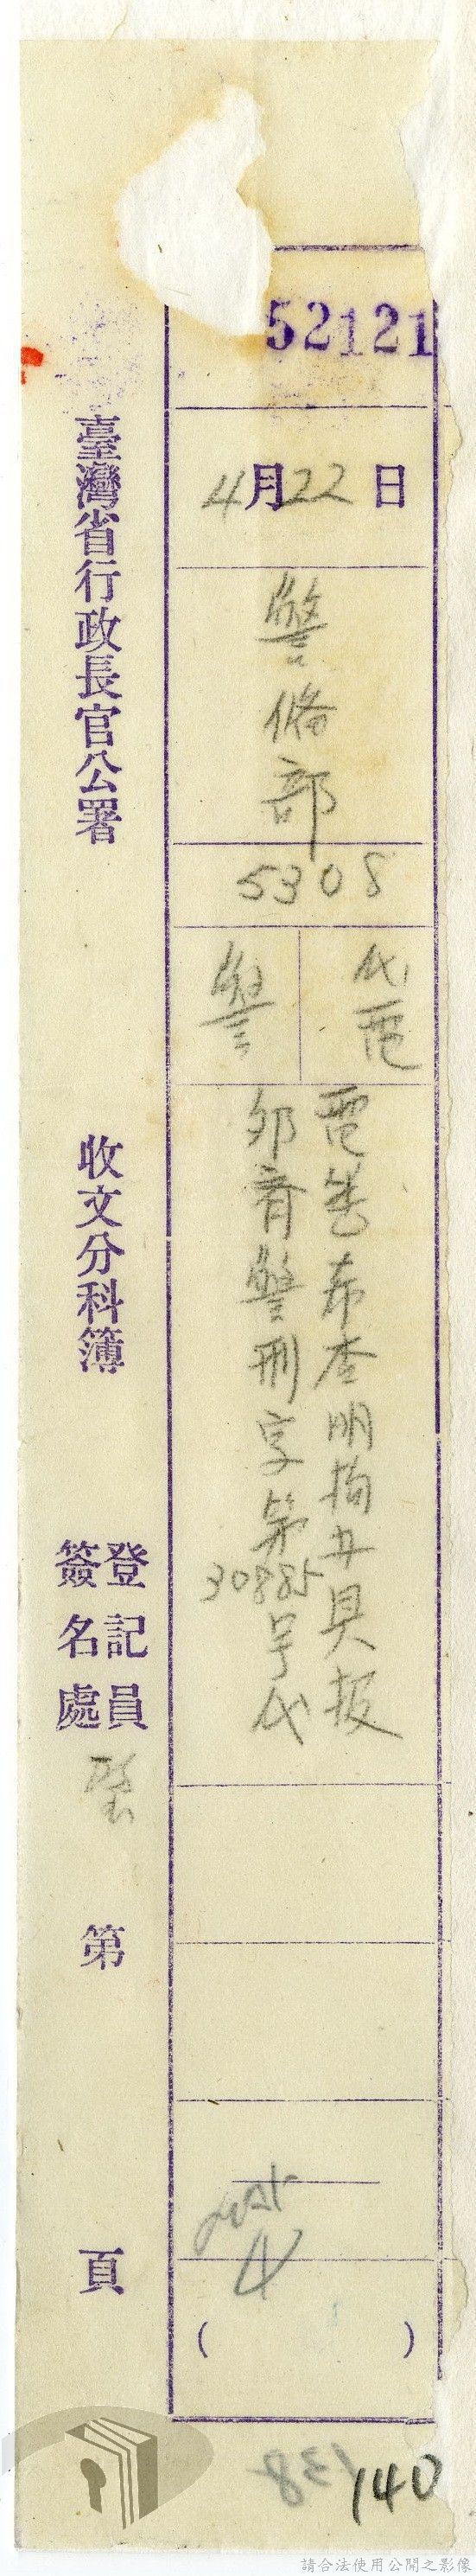 52121
4月22日
警備部
5308
代電
警
電善希查明拘䢖具报
邜育警刑字第30885号代
臺灣省行政長官公署
收文分科簿
登記員
簽名處
第
頁
4
( )
138
140
請合法使用公開之影像